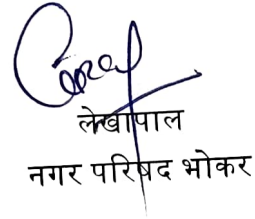 लेखापाल
नगर परिषद भोकर